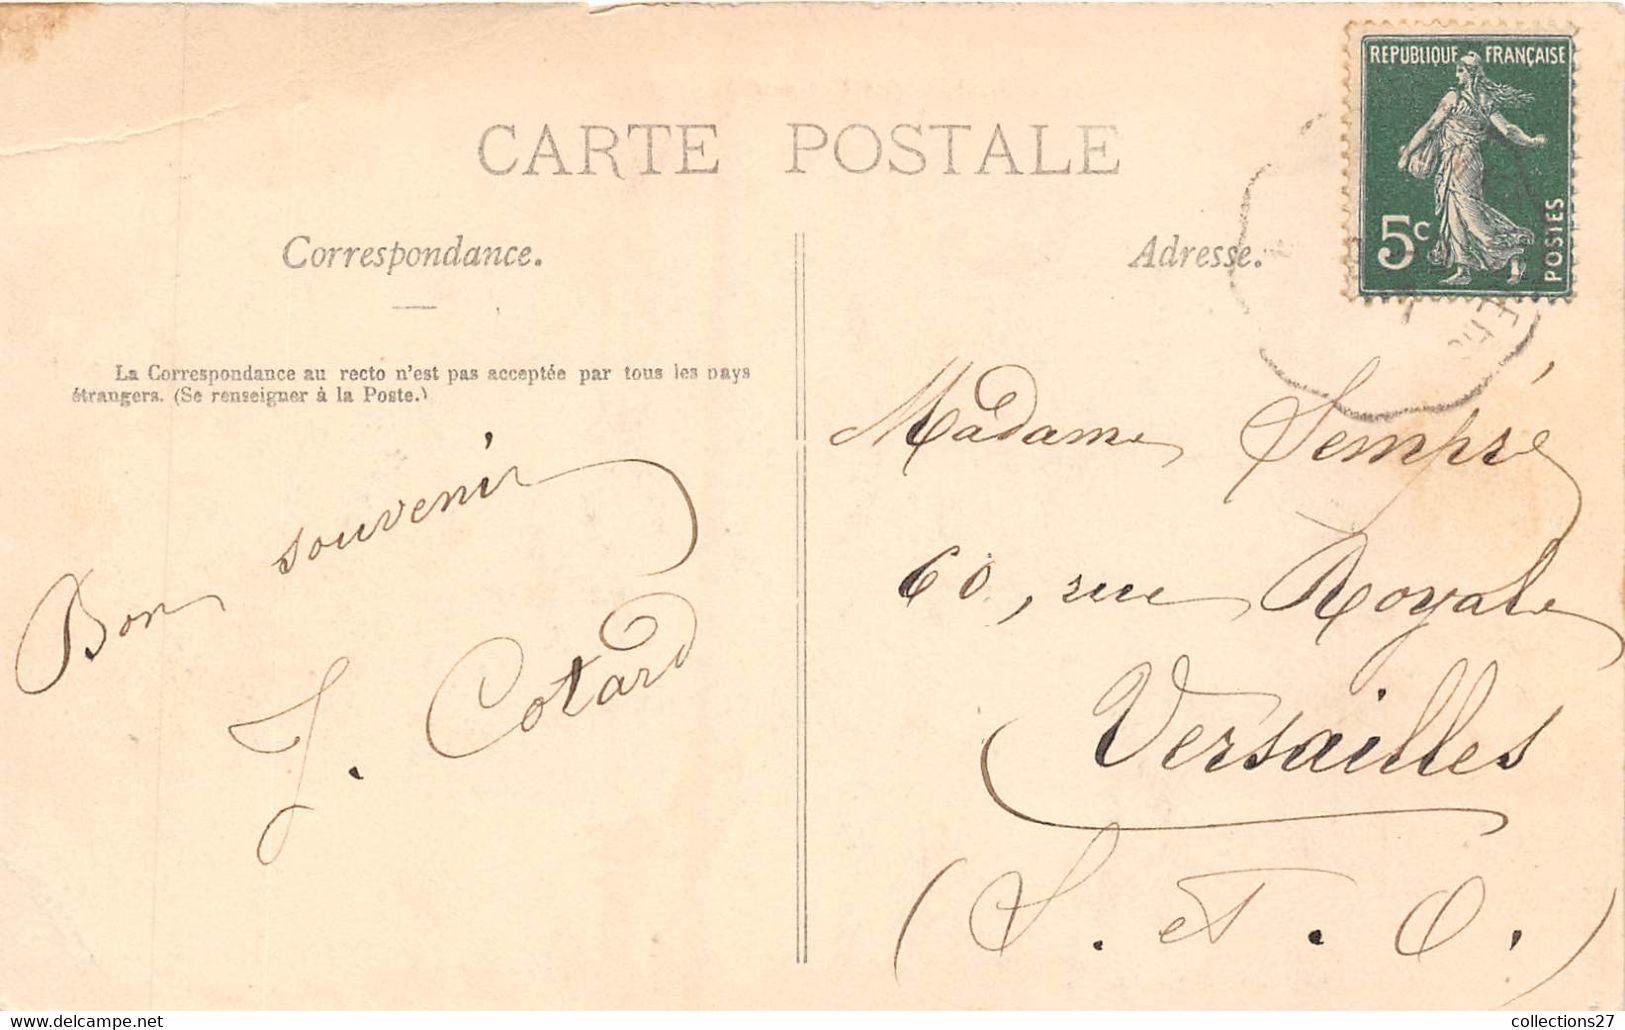 CARTE POSTALE
REPUBLIQUE FRANÇAISE
5c
POSTES
Correspondance.
Adresse.
La Correspondance au recto n'est pas acceptée par tous les pays
étrangers. (Se renseigner à la Poste.)
Bon souvenir
J. Cotard
Madame Sempré
60, rue Royale
Versailles
(S. et. O.)
http://www.delcampe.net
collections27